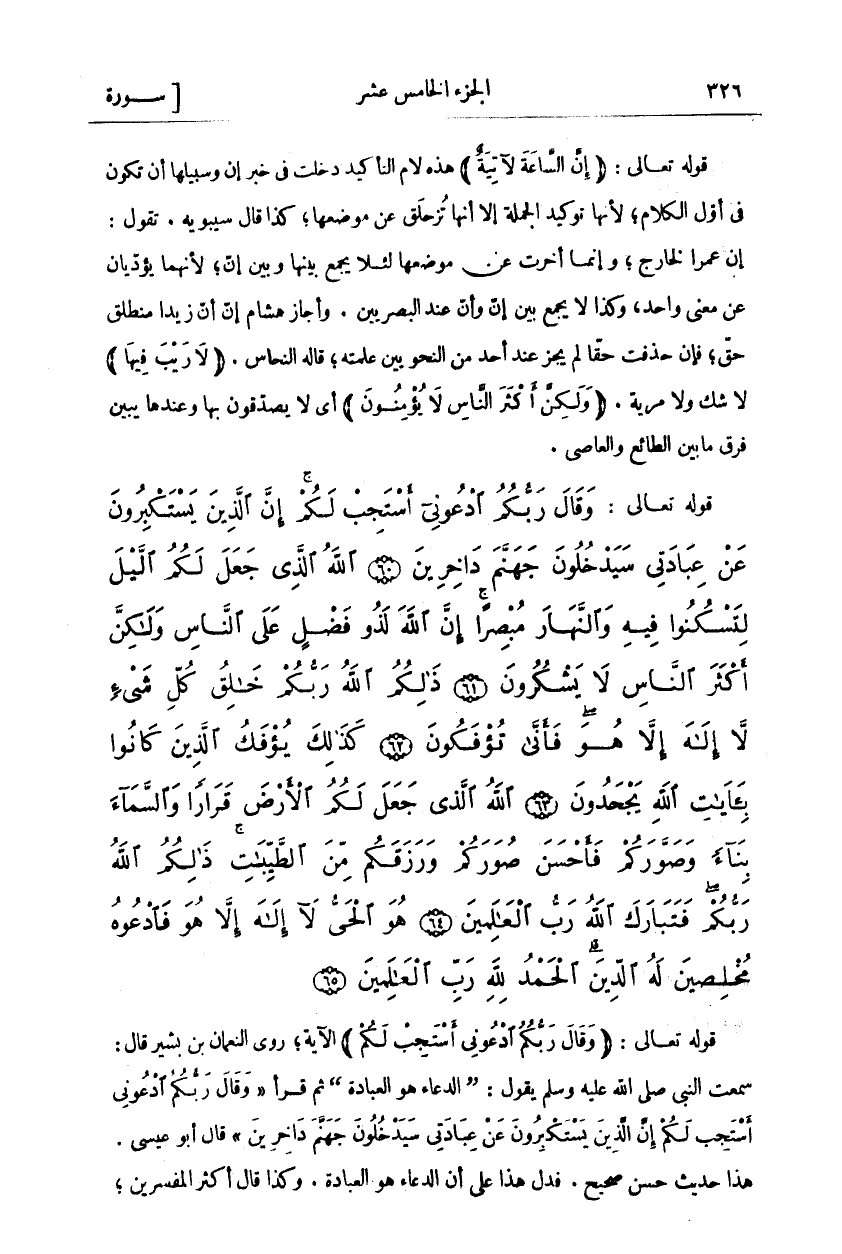 ٣٢٦ الجزء الخامس عشر [ ســورة
قوله تعـالى : ﴿ إِنَّ السَّاعَةَ لَآتِيَةٌ ﴾ هذه لام التأكيد دخلت فى خبر إن وسبيلها أن تكون
فى أوّل الكلام؛ لأنها توكيد الجملة إلا أنها تُزحلَق عن موضعها؛ كذا قال سيبويه . تقول :
إن عمرا لخارج ؛ و إنمـا أخرت عن موضعها لئـلا يجمع بينها و بين إنّ؛ لأنهما يؤدّيان
عن معنى واحد، وكذا لا يجمع بين إنّ وأنّ عند البصريين . وأجاز هشام إنّ أنّ زيدا منطلق
حقّ؛ فإن حذفت حقّا لم يجز عند أحد من النحو يين علمته ؛ قاله النحاس . ﴿ لَا رَيْبَ فِيهَا ﴾
لا شك ولا مرية . ﴿ وَلَـكِنَّ أَكْثَرَ النَّاسِ لَا يُؤْمِنُـونَ ﴾ أى لا يصدّقون بها وعندها يبين
فرق ما بين الطائع والعاصى .
قوله تعـالى : وَقَالَ رَبُّكُمُ ٱدْعُونِىٓ أَسْتَجِبْ لَكُمْ ۚ إِنَّ ٱلَّذِينَ يَسْتَكْبِرُونَ
عَنْ عِبَادَتِى سَيَدْخُلُونَ جَهَنَّمَ دَاخِرِينَ ﴿٦٠﴾ ٱللَّهُ ٱلَّذِى جَعَلَ لَكُمُ ٱلَّيْلَ
لِتَسْكُنُوا فِيهِ وَٱلنَّهَارَ مُبْصِرًا ۚ إِنَّ ٱللَّهَ لَذُو فَضْلٍ عَلَى ٱلنَّاسِ وَلَـٰكِنَّ
أَكْثَرَ ٱلنَّاسِ لَا يَشْكُرُونَ ﴿٦١﴾ ذَٰلِكُمُ ٱللَّهُ رَبُّكُمْ خَـٰلِقُ كُلِّ شَىْءٍ
لَّا إِلَـٰهَ إِلَّا هُوَ ۖ فَأَنَّىٰ تُؤْفَكُونَ ﴿٦٢﴾ كَذَٰلِكَ يُؤْفَكُ ٱلَّذِينَ كَانُوا
بِـَٔايَـٰتِ ٱللَّهِ يَجْحَدُونَ ﴿٦٣﴾ ٱللَّهُ ٱلَّذِى جَعَلَ لَكُمُ ٱلْأَرْضَ قَرَارًا وَٱلسَّمَآءَ
بِنَآءً وَصَوَّرَكُمْ فَأَحْسَنَ صُوَرَكُمْ وَرَزَقَكُم مِّنَ ٱلطَّيِّبَـٰتِ ۚ ذَٰلِكُمُ ٱللَّهُ
رَبُّكُمْ ۖ فَتَبَارَكَ ٱللَّهُ رَبُّ ٱلْعَـٰلَمِينَ ﴿٦٤﴾ هُوَ ٱلْحَىُّ لَآ إِلَـٰهَ إِلَّا هُوَ فَٱدْعُوهُ
مُخْلِصِينَ لَهُ ٱلدِّينَ ۗ ٱلْحَمْدُ لِلَّهِ رَبِّ ٱلْعَـٰلَمِينَ ﴿٦٥﴾
قوله تعـالى : ﴿ وَقَالَ رَبُّكُمُ ٱدْعُونِى أَسْتَجِبْ لَكُمْ ﴾ الآية؛ روى النعمان بن بشير قال :
سمعت النبى صلى الله عليه وسلم يقول : " الدعاء هو العبادة " ثم قـرأ « وَقَالَ رَبُّكُمُ ٱدْعُونِى
أَسْتَجِب لَكُمْ إِنَّ الَّذِينَ يَسْتَكْبِرُونَ عَنْ عِبَادَتِى سَيَدْخُلُونَ جَهَنَّمَ دَاخِرِينَ » قال أبو عيسى .
هذا حديث حسن صحيح . فدل هذا على أن الدعاء هو العبادة . وكذا قال أكثر المفسرين ؛